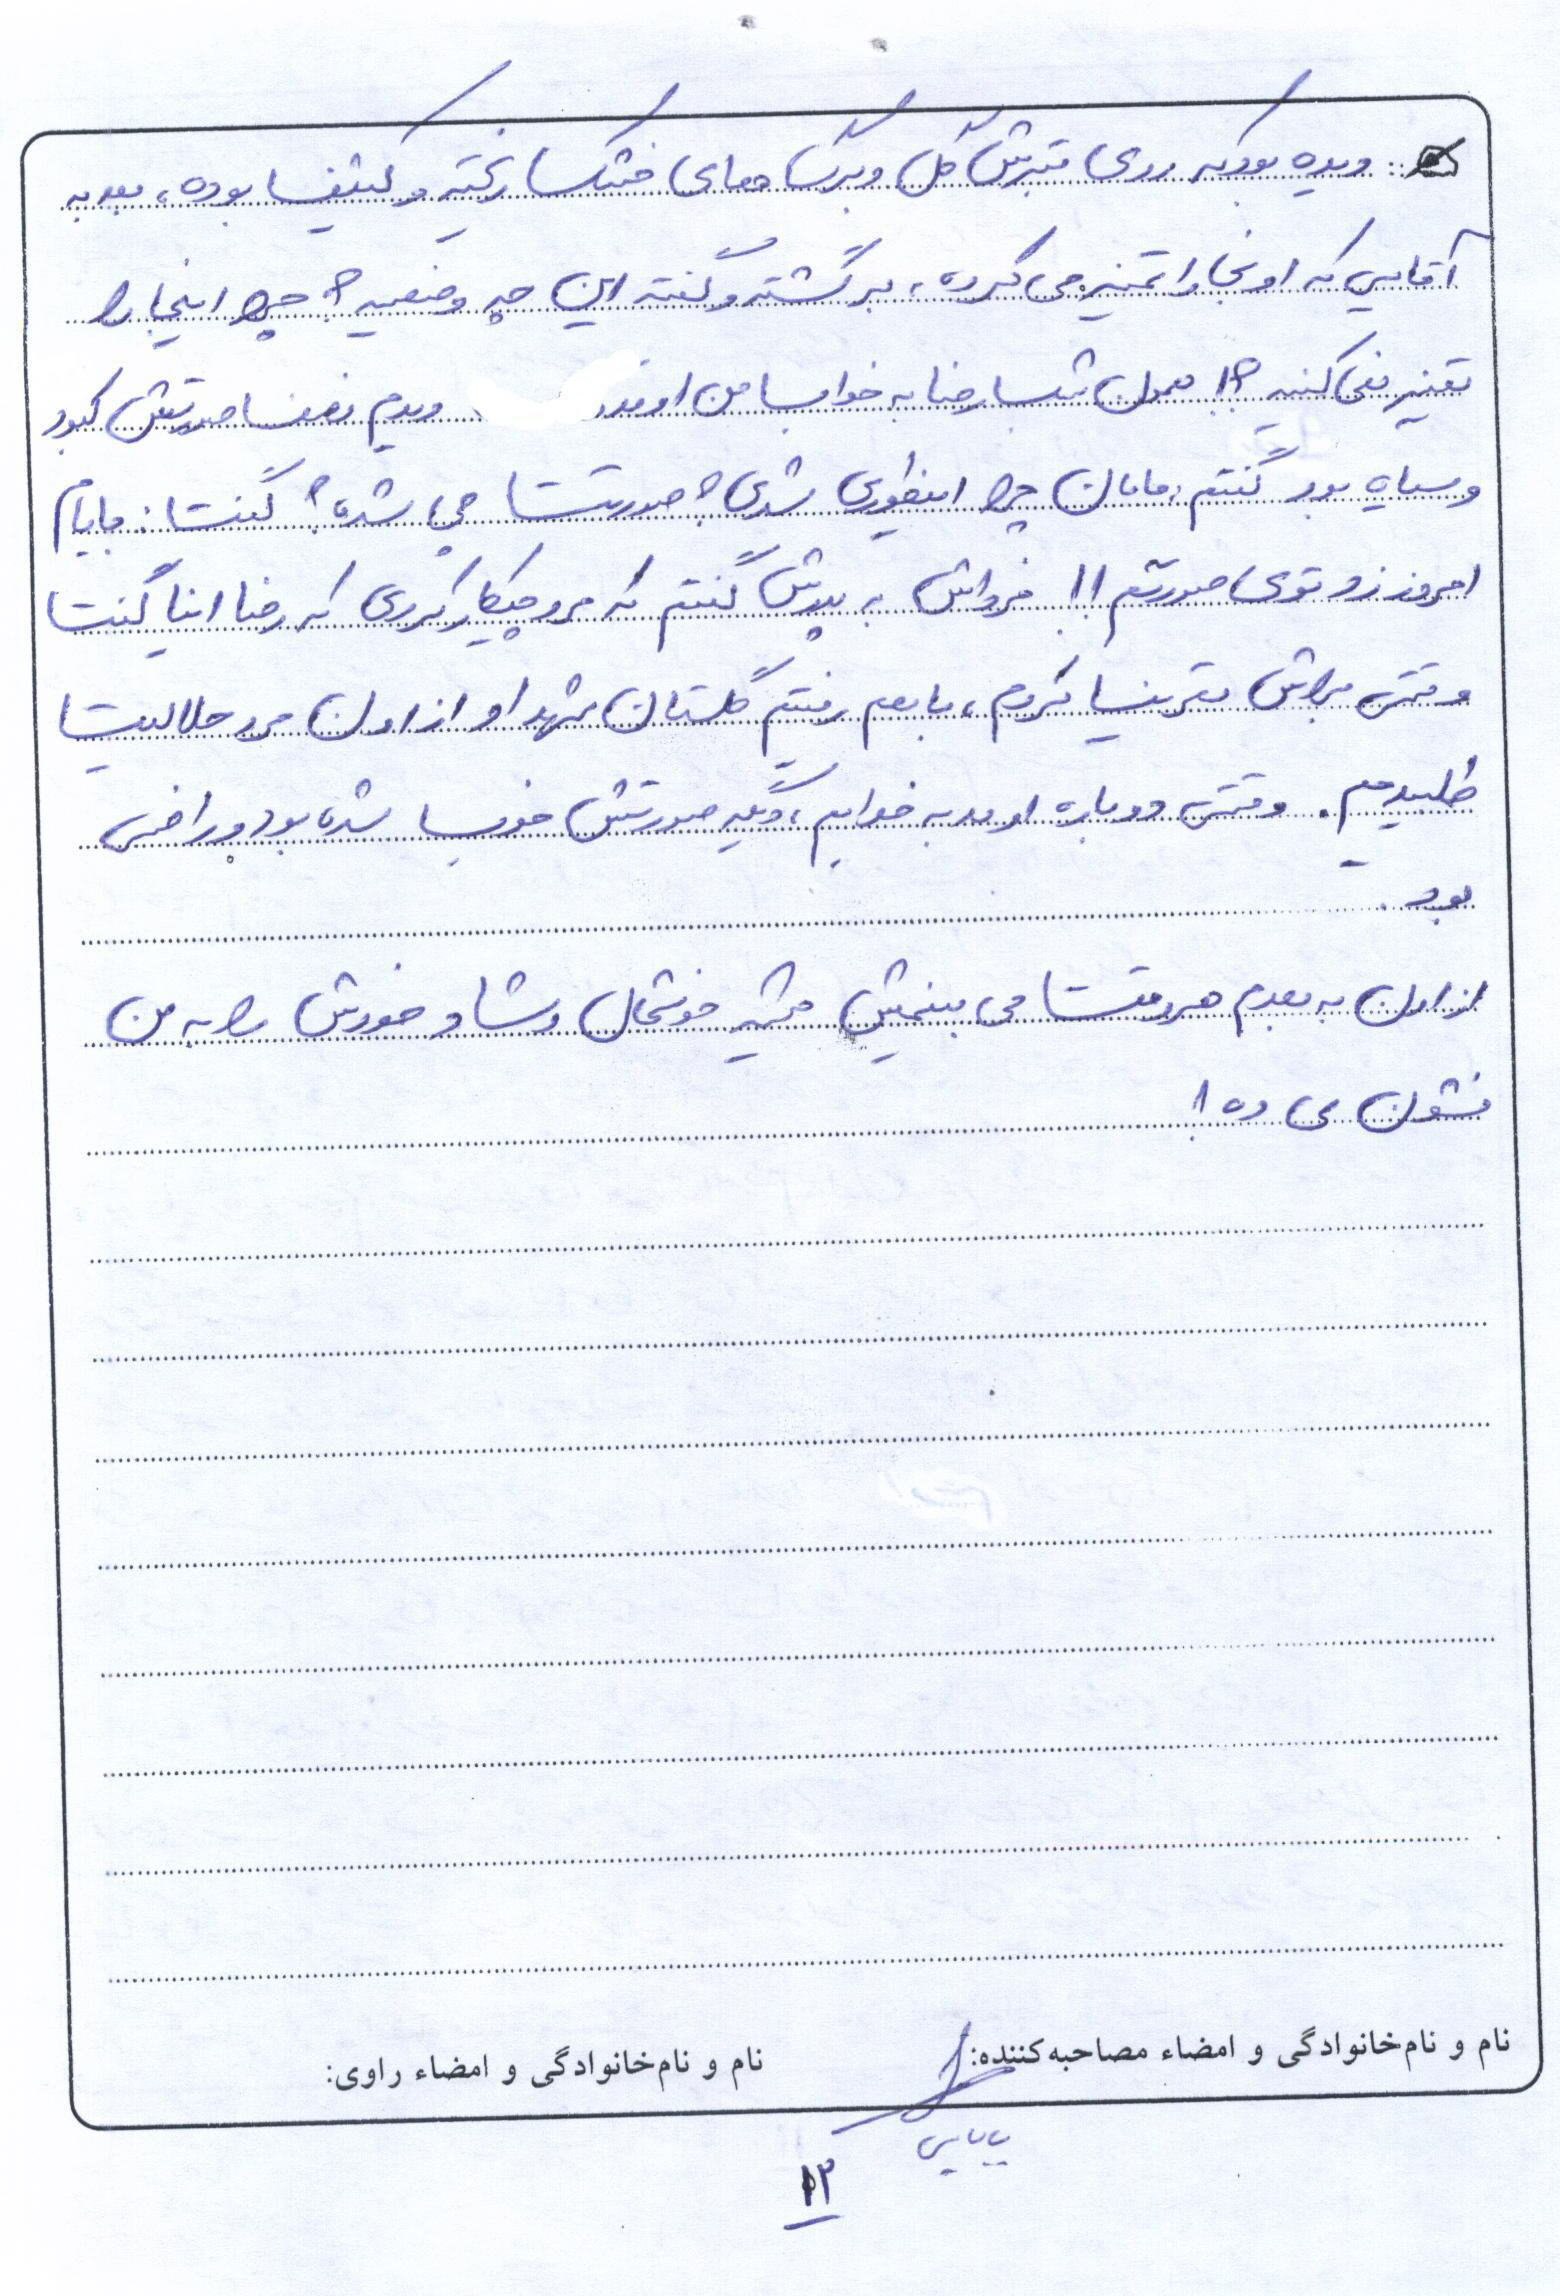 دیده بود که روی قبرش گل و برگ های خشک ریخته و کثیف بوده، بعد به
آقایی که اونجا را تمیز می کرده، برگشته و گفته این چه وضعیه؟ چرا اینجا را
تمیز نمی کنید؟! همون شب رضا به خواب من اومد دیدم نصف صورتش کبود
و سیاه بود گفتم، مامان چرا اینطوری شدی؟ صورتت چی شده؟ گفت: بابام
امروز زد توی صورتم!! فرداش به پدرش گفتم که مرد چیکار کردی که رضا اینا گفت
وقتی براش تعریف کردم، با هم رفتیم گلستان شهدا و از اون مرد حلالیت
طلبیدیم. وقتی دوباره اومد به خوابم، دیگه صورتش خوب شده بود و راضی
بود.
از اون به بعدم هر وقت می بینمش همیشه خوشحال و شاد خودش را به من
نشون می ده!
نام و نام‌خانوادگی و امضاء مصاحبه‌کننده: نام و نام‌خانوادگی و امضاء راوی:
بابایی
۱۳